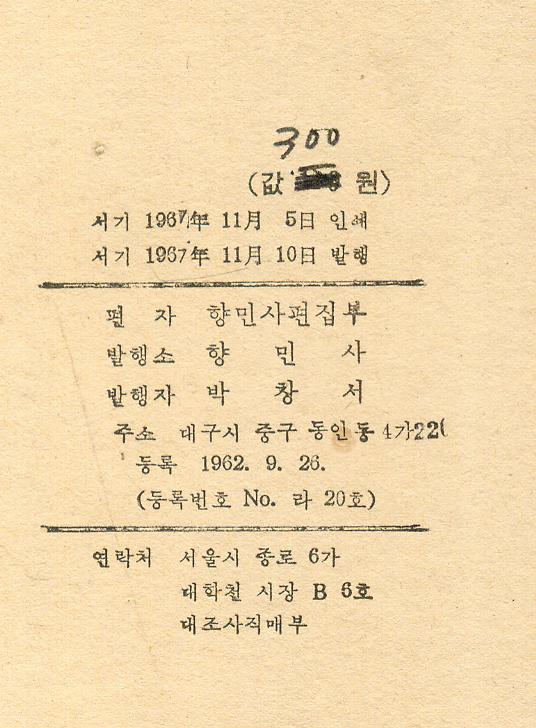 300
(값 원)
서기 1967年 11月 5日 인쇄
서기 1967年 11月 10日 발행
편 자 향민사편집부
발행소 향 민 사
발행자 박 창 서
주소 대구시 중구 동인동 4가22(
등록 1962. 9. 26.
(등록번호 No. 라 20호)
연락처 서울시 종로 6가
대학천 시장 B 6호
대조사직매부